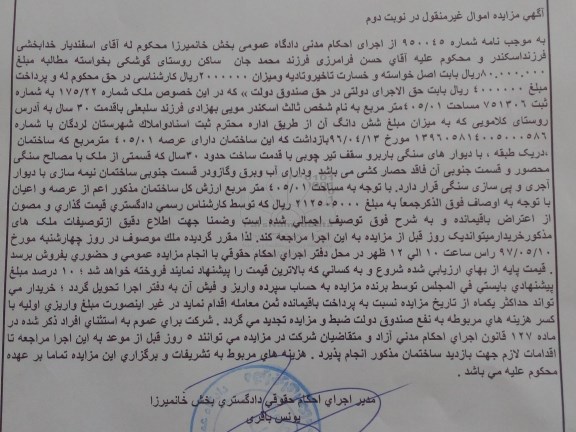 آگهی مزایده اموال غیرمنقول در نوبت دوم
به موجب نامه شماره ۹۵۰۰۴۵ از اجرای احکام مدنی دادگاه عمومی بخش خانمیرزا محکوم له آقای اسفندیار خدابخشی
فرزنداسکندر و محکوم علیه آقای حسن فرامرزی فرزند محمد جان ساکن روستای گوشکی بخواسته مطالبه مبلغ
۸۰.۰۰۰.۰۰۰ریال بابت اصل خواسته و خسارت تاخیروتادیه ومیزان ۲۰۰۰۰۰۰ریال کارشناسی در حق محکوم له و پرداخت
مبلغ ۴۰۰۰۰۰۰ ریال بابت حق الاجرای دولتی در حق صندوق دولت » که در این خصوص ملک شماره ۱۷۵/۲۲ به شماره
ثبت ۷۵۱۳۰۶ مساحت ۴۰۵/۰۱ متر مربع به نام شخص ثالث اسکندر موبی بهزادی فرزند سلیعلی باقدمت ۳۰ سال به آدرس
روستای کلامویی که به میزان مبلغ شش دانگ آن از طریق اداره محترم ثبت اسنادواملاک شهرستان لردگان با شماره
۱۳۹۶۰۵۸۱۴۰۰۵۰۰۰۵۸۶ مورخ ۹۶/۰۴/۱۳بازداشت که این ساختمان دارای عرصه ۴۰۵/۰۱ مترمربع که ساختمان
،دریک طبقه ، با دیوار های سنگی باربرو سقف تیر چوبی با قدمت ساخت حدود ۳۰سال که قسمتی از ملک با مصالح سنگی
محصور و قسمت جنوبی آن فاقد حصار کشی می باشد ودارای آب وبرق وگازودر قسمت جنوبی ساختمان نیمه سازی با دیوار
آجری و پی سازی سنگی قرار دارد. با توجه به مساحت ۴۰۵/۰۱ متر مربع ارزش کل ساختمان مذکور اعم از عرصه و اعیان
با توجه به اوصاف فوق الذکرجمعاً به مبلغ ۲۱۲۵۰۵۰۰۰ ریال که توسط کارشناس رسمی دادگستری قیمت گذاری و مصون
از اعتراض باقیمانده و به شرح فوق توصیف اجمالی شده است وضمنا جهت اطلاع دقیق ازتوصیفات ملک های
مذکورخریدارمیتواندیک روز قبل از مزایده به این اجرا مراجعه کند. لذا مقرر گردیده ملک موصوف در روز چهارشنبه مورخ
۹۷/۰۵/۱۰ راس ساعت ۱۰ الی ۱۲ ظهر در محل دفتر اجرای احکام حقوقی با انجام مزایده عمومی و حضوری بفروش برسد
. قیمت پایه از بهای ارزیابی شده شروع و به کسانی که بالاترین قیمت را پیشنهاد نمایند فروخته خواهد شد ؛ ۱۰ درصد مبلغ
پیشنهادی بایستی فی المجلس توسط برنده مزایده به حساب سپرده واریز و فیش آن به دفتر اجرا تحویل گردد ؛ خریدار می
تواند حداکثر یکماه از تاریخ مزایده نسبت به پرداخت باقیمانده ثمن معامله اقدام نماید در غیر اینصورت مبلغ واریزی اولیه با
کسر هزینه های مربوطه به نفع صندوق دولت ضبط و مزایده تجدید می گردد . شرکت برای عموم به استثنای افراد ذکر شده در
ماده ۱۲۷ قانون اجرای احکام مدنی آزاد و متقاضیان شرکت در مزایده می توانند ۵ روز قبل از موعد به این اجرا مراجعه تا
اقدامات لازم جهت بازدید ساختمان مذکور انجام پذیرد . هزینه های مربوط به تشریفات و برگزاری این مزایده تماما بر عهده
محکوم علیه می باشد .
مدیر اجرای احکام حقوقی دادگستری بخش خانمیرزا
یونس باقری